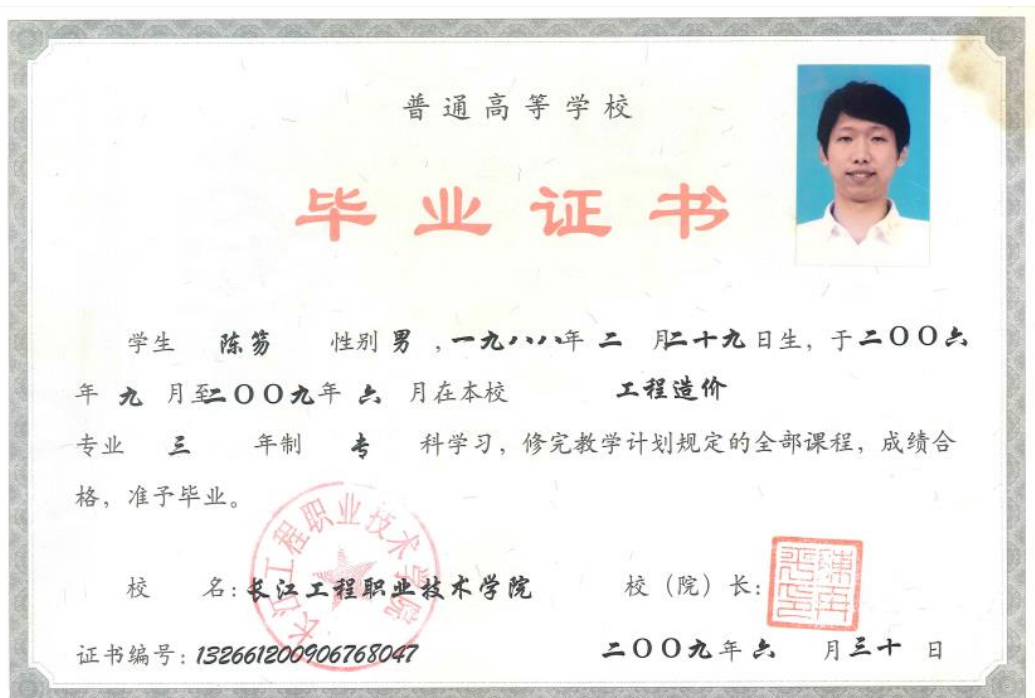 普通高等学校
毕业证书
学生 陈笏 性别 男 ,一九八八年 二 月二十九日生, 于二〇〇六
年 九 月至二〇〇九年 六 月在本校 工程造价
专业 三 年制 专 科学习, 修完教学计划规定的全部课程, 成绩合
格, 准予毕业。
长江工程职业技术学院
校 名: 长江工程职业技术学院 校(院)长:
证书编号: 132661200906768047 二〇〇九年 六 月三十 日